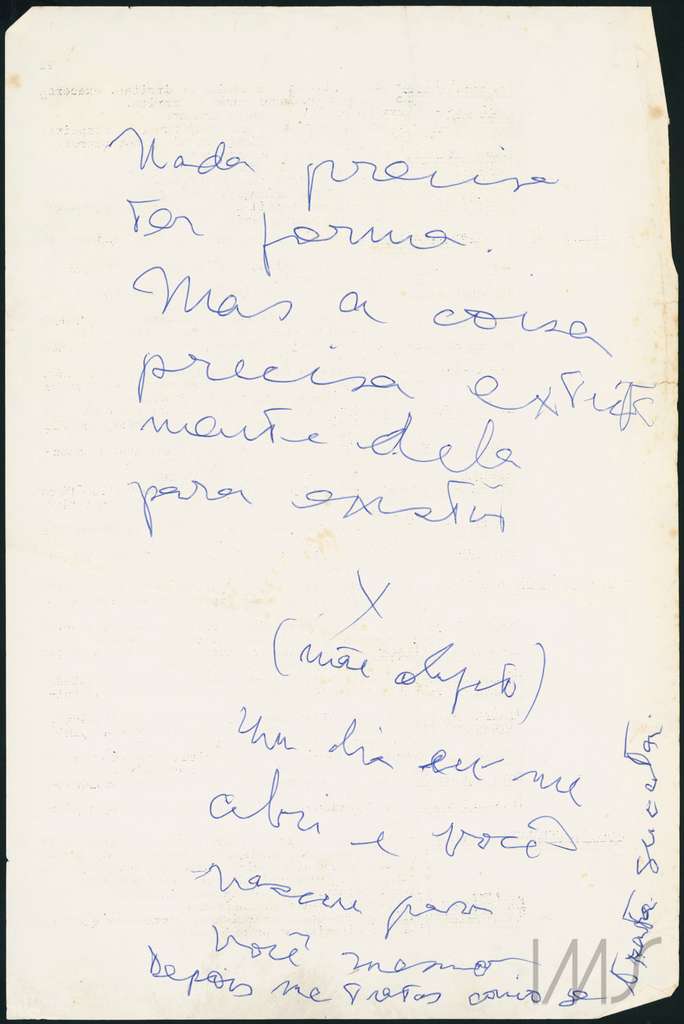 Nada precisa
ter forma.
Mas a coisa
precisa estrita
mente dela
para existir
X
(mãe objeto)
Um dia eu me
abri e você
nasceu para
você mesmo
Depois me tratas como se
trata sucata.
IMS